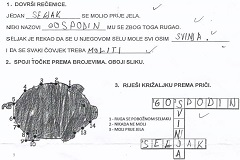 1. DOVRŠI REČENICE.
JEDAN SELJAK SE MOLIO PRIJE JELA.
NEKI NAZOVI GOSPODIN MU SE ZBOG TOGA RUGAO.
SELJAK JE REKAO DA SE U NJEGOVOM SELU MOLE SVI OSIM SVINJA.
I DA SE SVAKI ČOVJEK TREBA MOLITI
2. SPOJI TOČKE PREMA BROJEVIMA. OBOJI SLIKU.
3. RIJEŠI KRIŽALJKU PREMA PRIČI.
GOSPODIN
1 - RUGA SE POBOŽNOM SELJAKU
2 - NIKADA NE MOLI
3 - MOLI PRIJE JELA
SVINJA
SELJAK